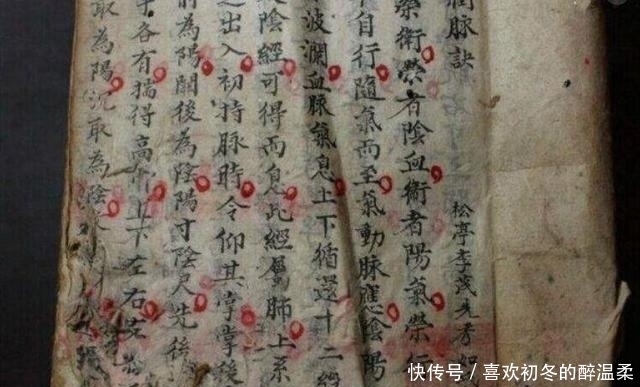 潤脉訣
松亭李茂先考
榮衛榮者陰血衛者陽氣榮行
自行隨氣而至氣動脉應陰陽
波瀾血脉氣息上下循還十二經
陰經可得而息此經屬肺上系
之出入初持脉時令仰其掌掌後
前為陽關後為陰陽寸陰尺先後
各有揣得高骨上下左右
取為陽沉取為陰
快传号/喜欢初冬的醉温柔